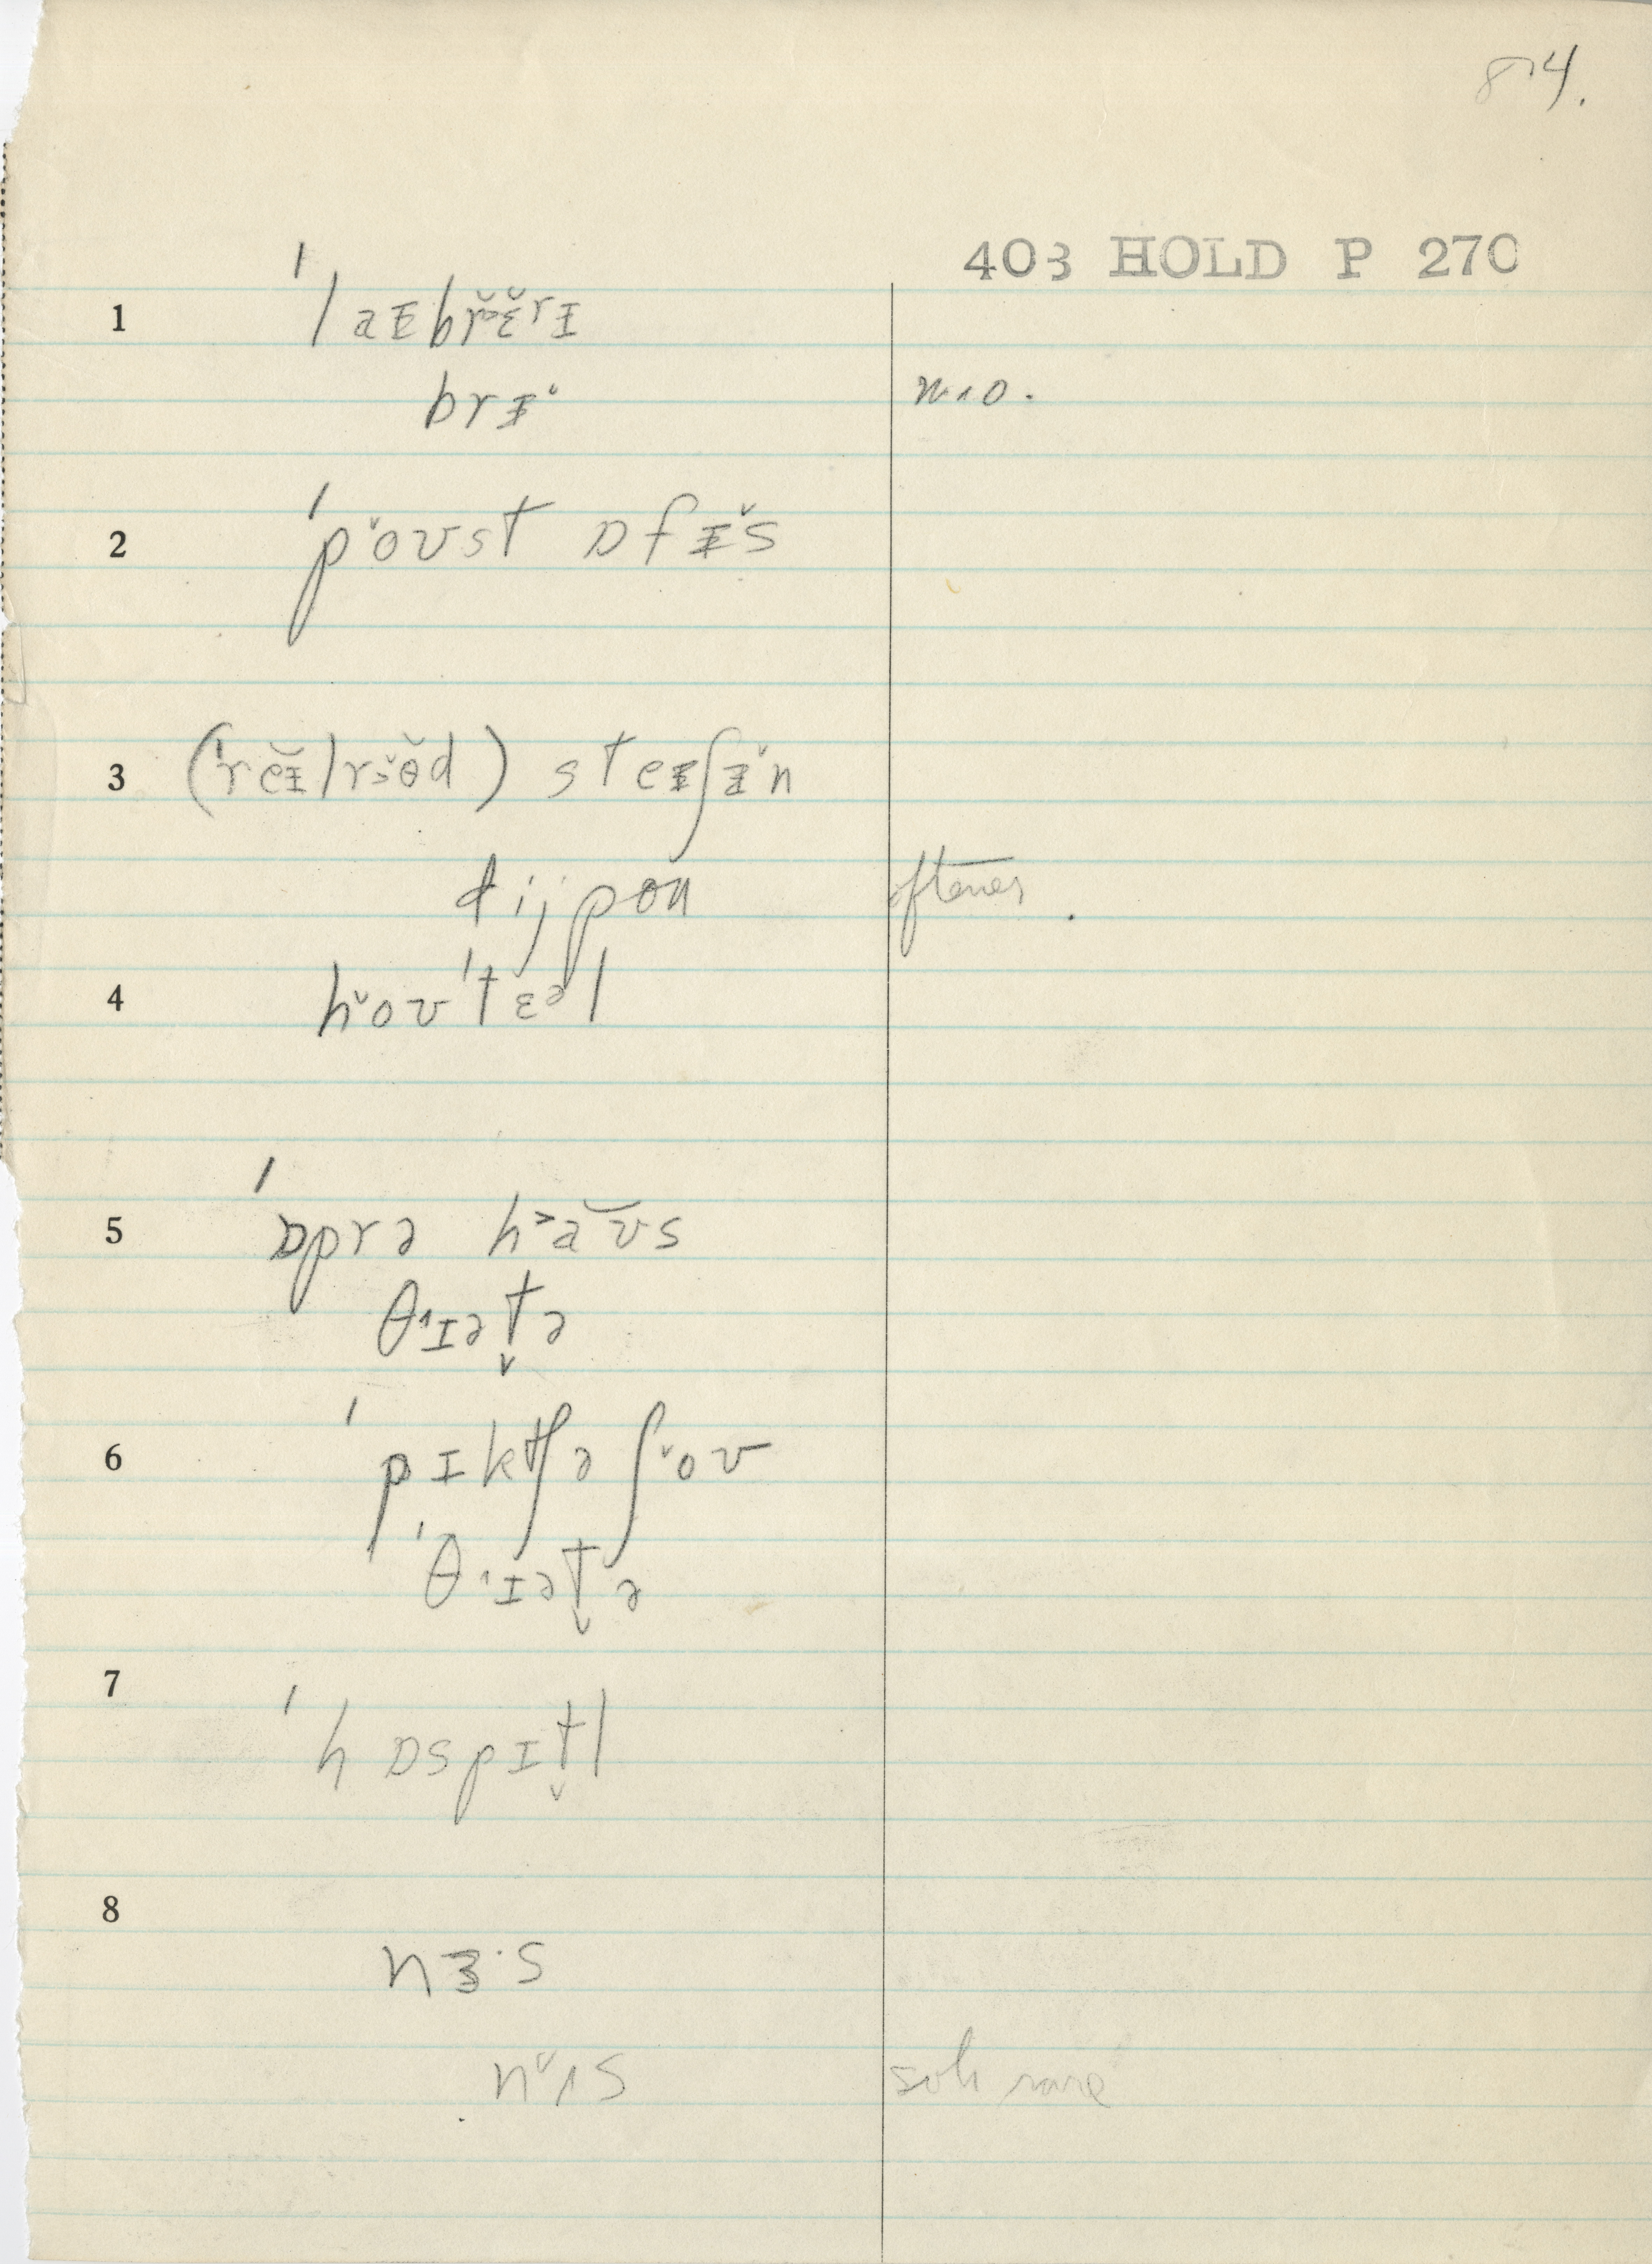 84.
403 HOLD P 270
1 ˈlaɪbrɛ̆rɪ
brɪˇ n. o.
2 ˈpˇoʊst ɒfɪˇs
3 (ˈre̮ɪlrɔˇɵd) steɪʃɪˇn
dijpou oftener.
4 hˇoʊˈtɛᵊl
5 ˈɒprə h˃a̮ʊs
θ˄ɪət̬ə
6 ˈpɪktʃə ʃˇoʊ
ˈθ˄ɪət̬ə
7 ˈhɒspɪt̬l
8
nɜ·s
nˇɪs rare